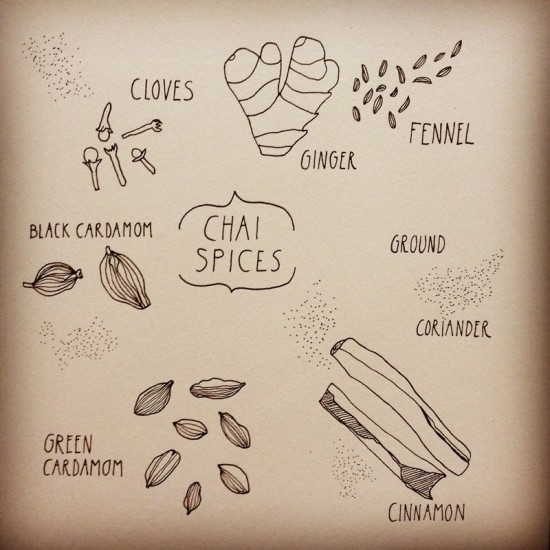 CLOVES
GINGER
FENNEL
BLACK CARDAMOM
CHAI
SPICES
GROUND
CORIANDER
GREEN
CARDAMOM
CINNAMON